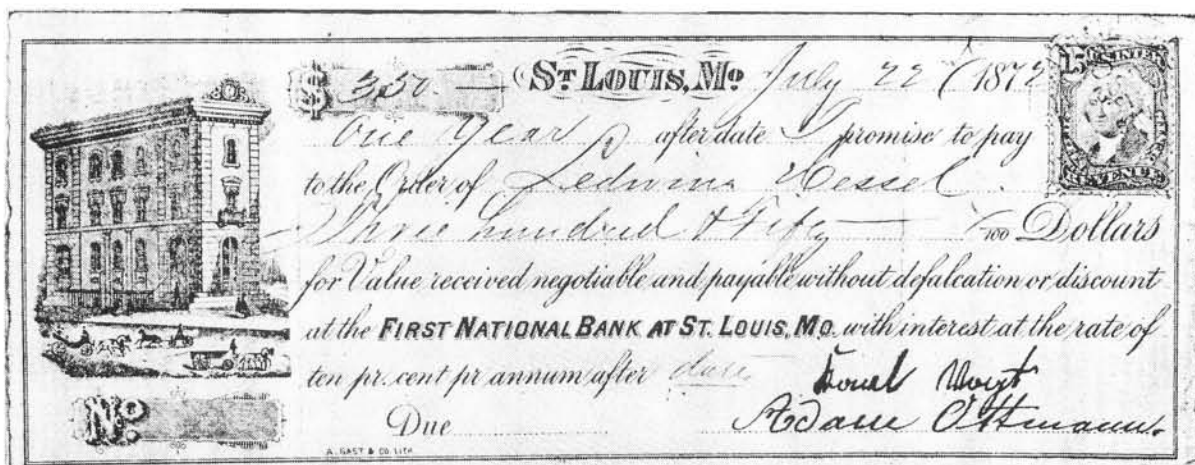 $ 350.— ST. LOUIS, MO. July 22 1872
One Year after date I promise to pay
to the Order of Ledwina Wessel
Three hundred & Fifty — /100 Dollars
for Value received negotiable and payable without defalcation or discount
at the FIRST NATIONAL BANK AT ST. LOUIS, MO. with interest at the rate of
ten pr. cent pr annum after date
Voigt
No. Due Adam Ottmann.
A. GAST & CO. LITH.
15 U.S. INTER.
REVENUE